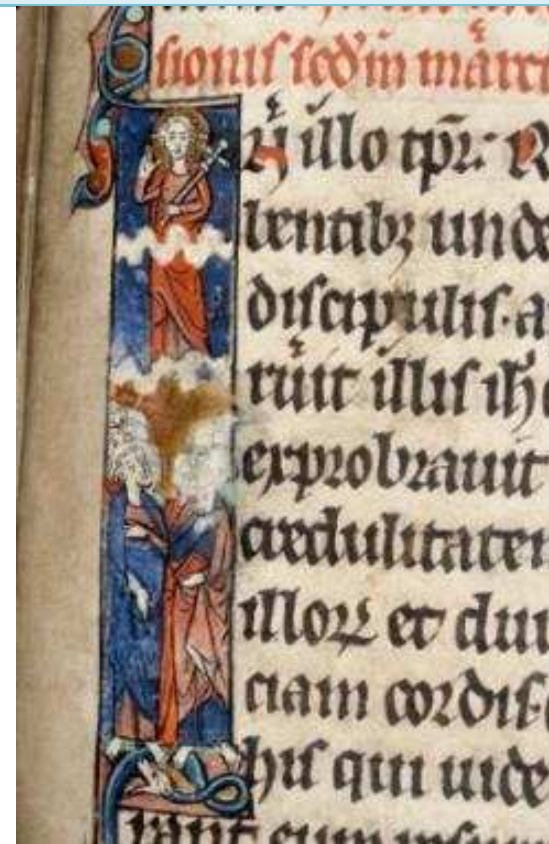 sionis scd'm marc
In illo tpr: R
bentibꝫ unde
discipulis. a
ruit illis ihc
exprobrauit
credulitatem
illoꝝ et duri
ciam cordis
his qui uide
rant eum